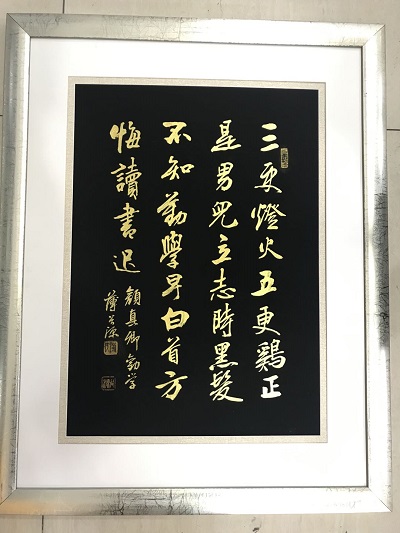 三更燈火五更鷄正
是男兒立志時黑髮
不知勤學早白首方
悔讀書迟
顏真卿勸学